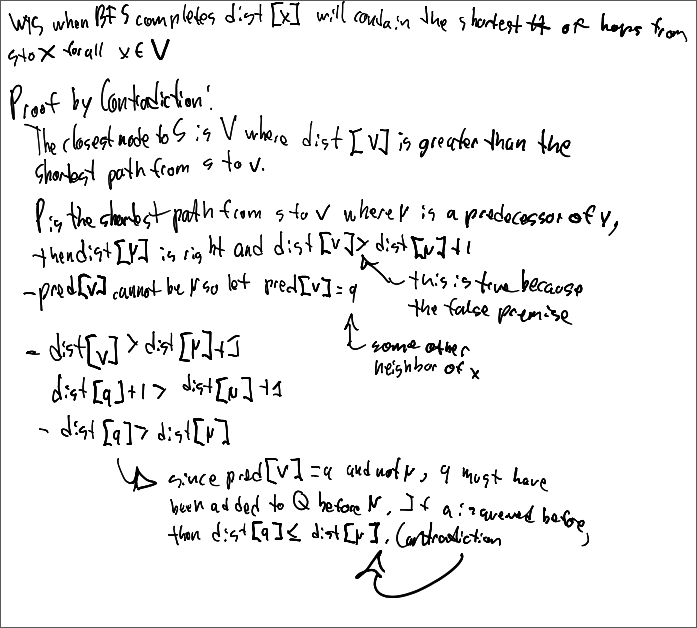 WTS when BFS completes dist [x] will contain the shortest # of hops from
s to x for all x ∈ V
Proof by Contradiction:
The closest node to S is V where dist [V] is greater than the
shortest path from s to v.
P is the shortest path from s to v where μ is a predecessor of v,
then dist[μ] is right and dist[v] > dist[μ]+1
this is true because
the false premise
- pred[v] cannot be μ so let pred[v] = q
some other
neighbor of x
- dist[v] > dist[μ]+1
dist[q]+1 > dist[μ]+1
- dist[q] > dist[μ]
since pred[v] = q and not μ, q must have
been added to Q before μ. If q is queued before,
then dist[q] ≤ dist[μ]. Contradiction